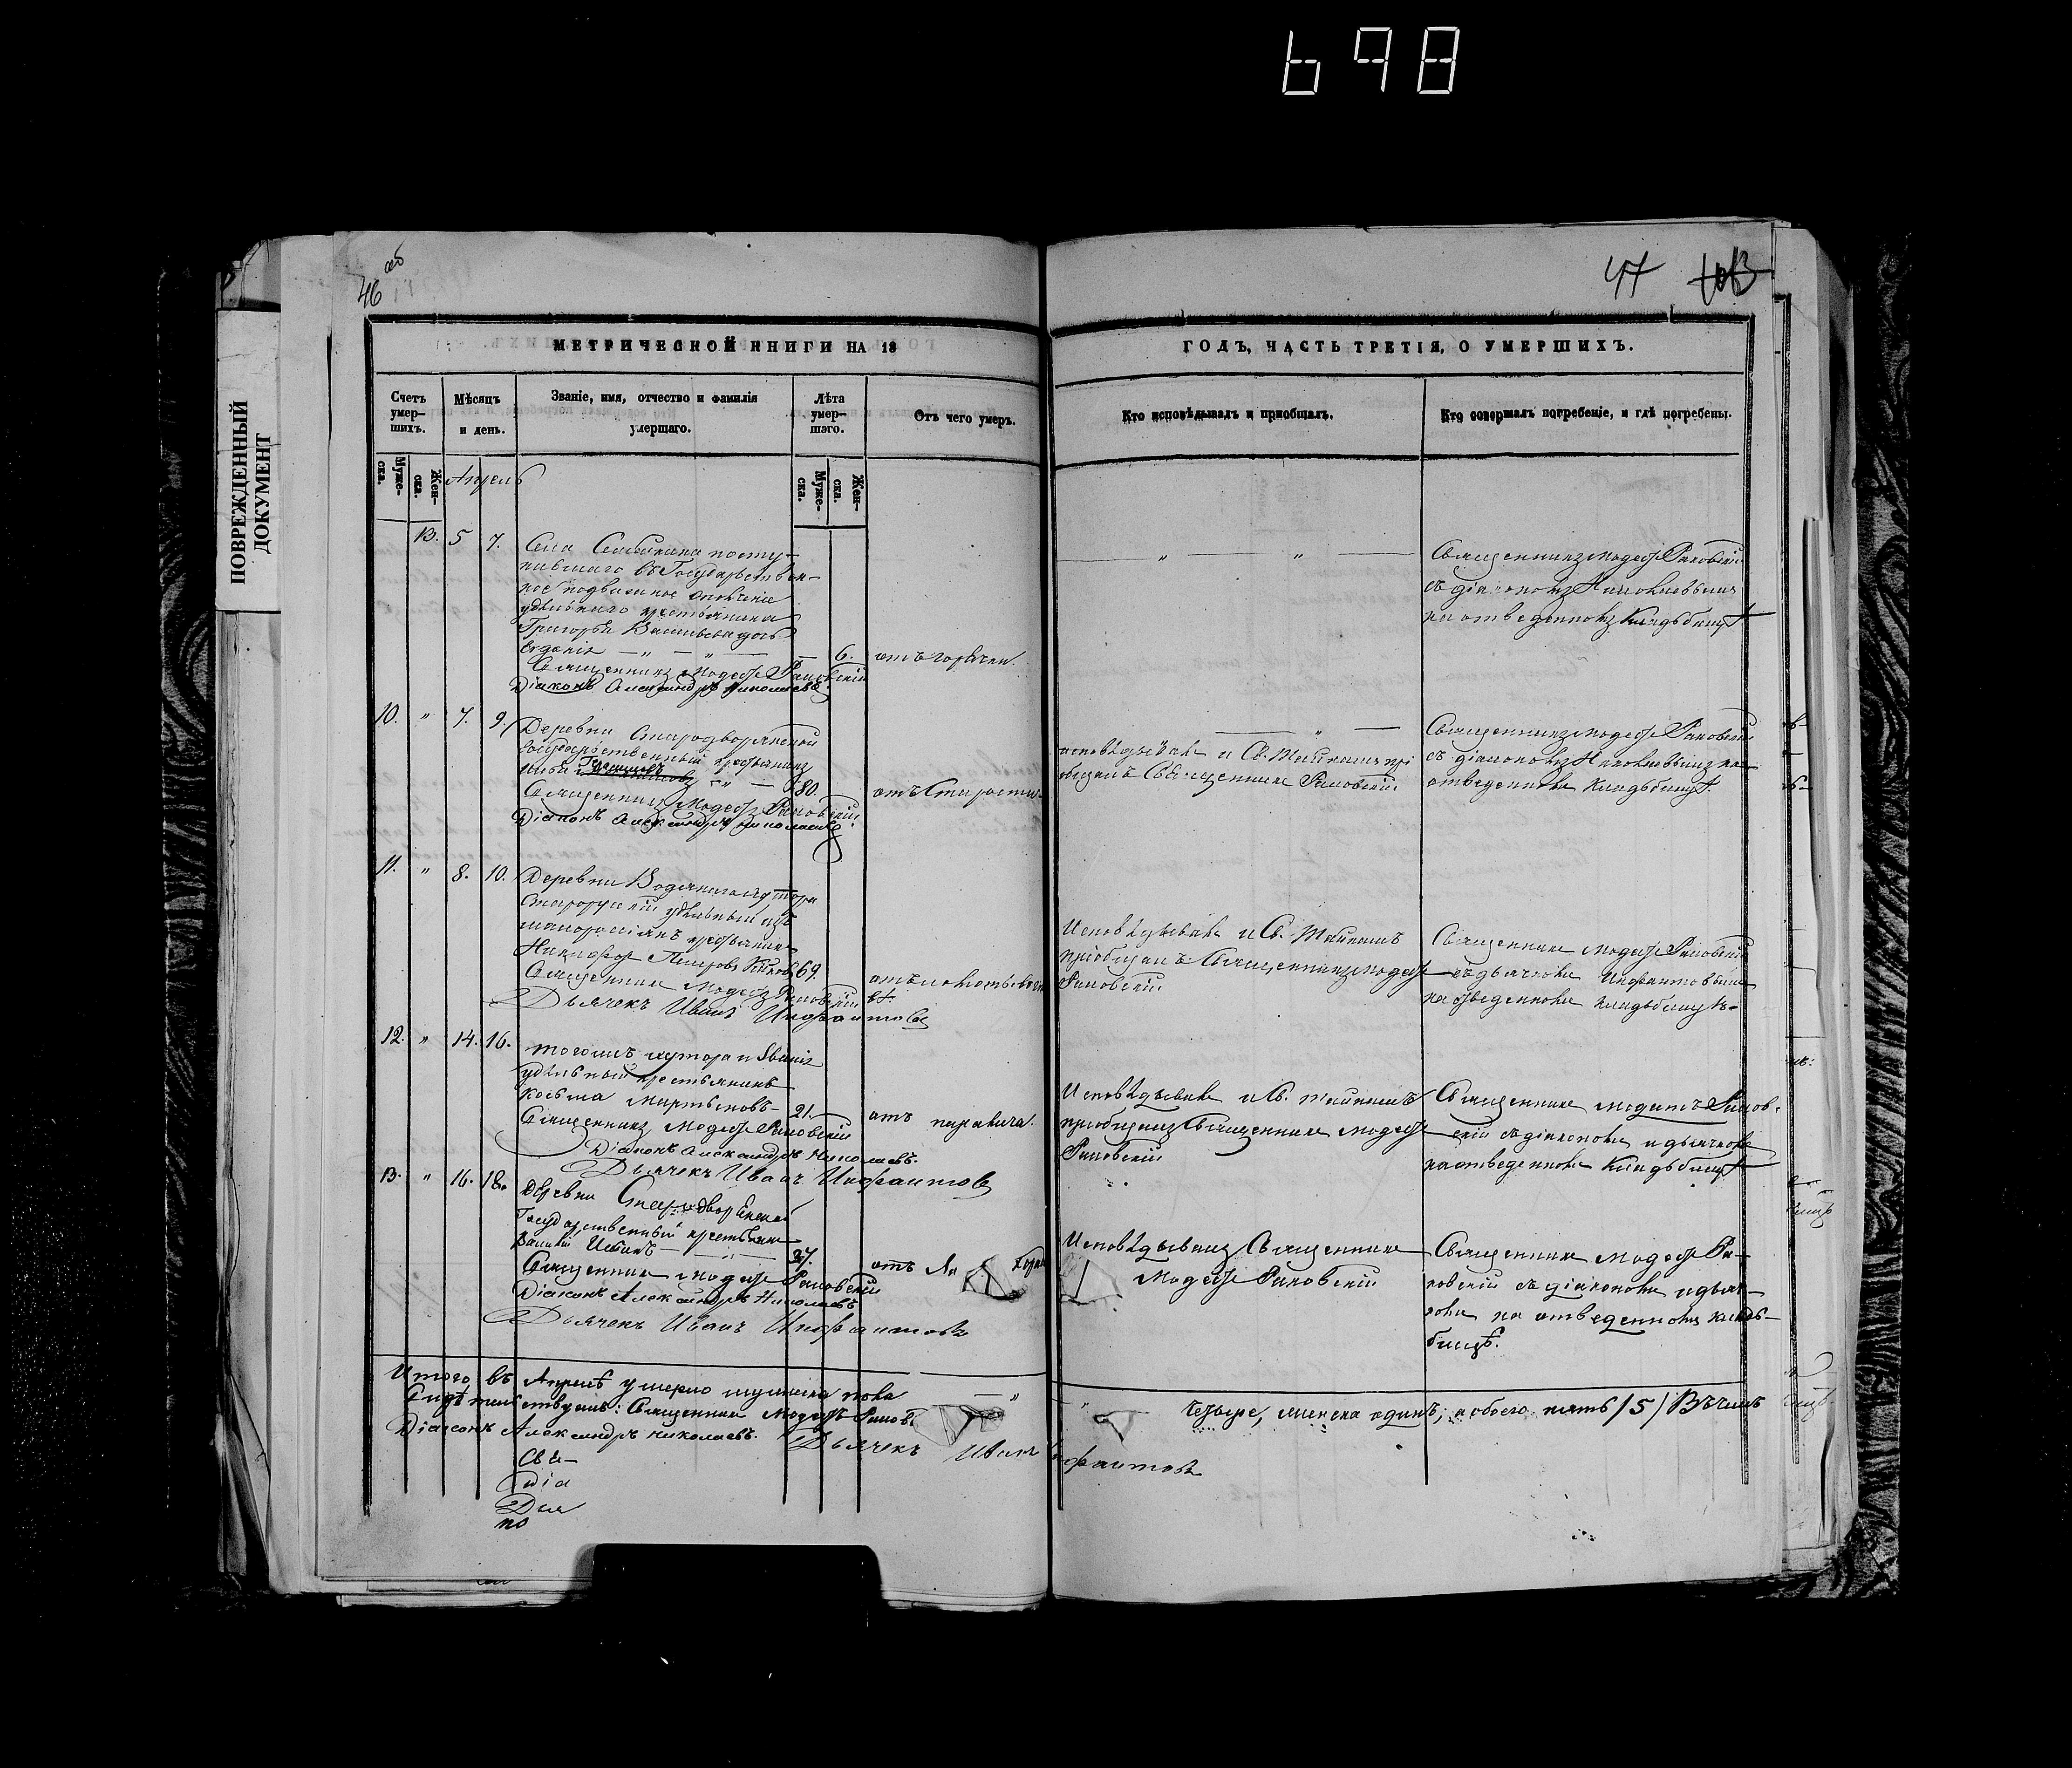 698
46 об
47
ПОВРЕЖДЕННЫЙ
ДОКУМЕНТ
МЕТРИЧЕСКОЙ КНИГИ НА 18
ГОДЪ, ЧАСТЬ ТРЕТІЯ, О УМЕРШИХЪ.
Счетъ умер-шихъ.
Мѣсяцъ и день.
Званіе, имя, отчество и фамилія умершаго.
Лѣта умер-шаго.
Отъ чего умеръ.
Кто исповѣдывалъ и пріобщалъ.
Кто совершалъ погребеніе, и гдѣ погребены.
Муже-ска.
Жен-ска.
Муже-ска.
Жен-ска.
Апрель
13. 5 7.
Села
посту-
пившаго въ Государствен-
ное подвижное ополченіе
удѣльнаго крестьянина
Григорья Васильева дочь
Евдокія — " — " — 6. отъ горячки.
Священникъ Модестъ Раковскій
Діаконъ Александръ Николаевъ
" — "
Священникъ Модестъ Раковскій
съ діакономъ Николаевымъ
на отведенномъ кладбищѣ
10. " 7. 9.
Деревни Стародворянской
государственный крестьянинъ
" — 80. отъ старости
Священникъ Модестъ Раковскій
Діаконъ Александръ Николаевъ
— " —
исповѣдывалъ и Св. Тайнамъ прі
общалъ Священникъ Раковскій
Священникъ Модестъ Раковскій
съ діакономъ Николаевымъ на
отведенномъ кладбищѣ.
11. " 8. 10.
Деревни Водянаго хутора
удѣльный изъ
малороссіянъ крестьянинъ
Никифоръ 69.
Священникъ Модестъ Раковскій
Дьячекъ Иванъ Инфантовъ
Исповѣдывалъ и Св. Тайнамъ
пріобщалъ Священникъ Модестъ
Раковскій
Священникъ Модестъ Раковскій
съ дьячкомъ Инфантовымъ
на отведенномъ кладбищѣ
12. " 14. 16.
тогожъ хутора и званія
удѣльный крестьянинъ
Косьма Мартыновъ — 21. отъ паралича.
Священникъ Модестъ Раковскій
Діаконъ Александръ Николаевъ.
Дьячекъ Иванъ Инфантовъ
Исповѣдывалъ и Св. тайнамъ
пріобщалъ Священникъ Модестъ
Раковскій
Священникъ Модестъ Раков-
скій съ діакономъ и дьячкомъ
на отведенномъ кладбищѣ
13. " 16. 18.
Деревни Стародворянской
Государственный крестьянинъ
Василій — " — 27. отъ
Священникъ Модестъ Раковскій
Діаконъ Александръ Николаевъ
Дьячекъ Иванъ Инфантовъ
Исповѣдывалъ Священникъ
Модестъ Раковскій
Священникъ Модестъ Ра-
ковскій съ діакономъ и дьяч-
комъ на отведенномъ клад-
бищѣ.
Итого въ Апрелѣ умерло мужеска пола — " " четыре, женска одинъ; а обоего пять /5/ Въ чемъ
свидѣтельствуемъ: Священникъ Модестъ
Діаконъ Александръ Николаевъ. Дьячекъ Иванъ Инфантовъ
Свя-
Діа
Дья
по